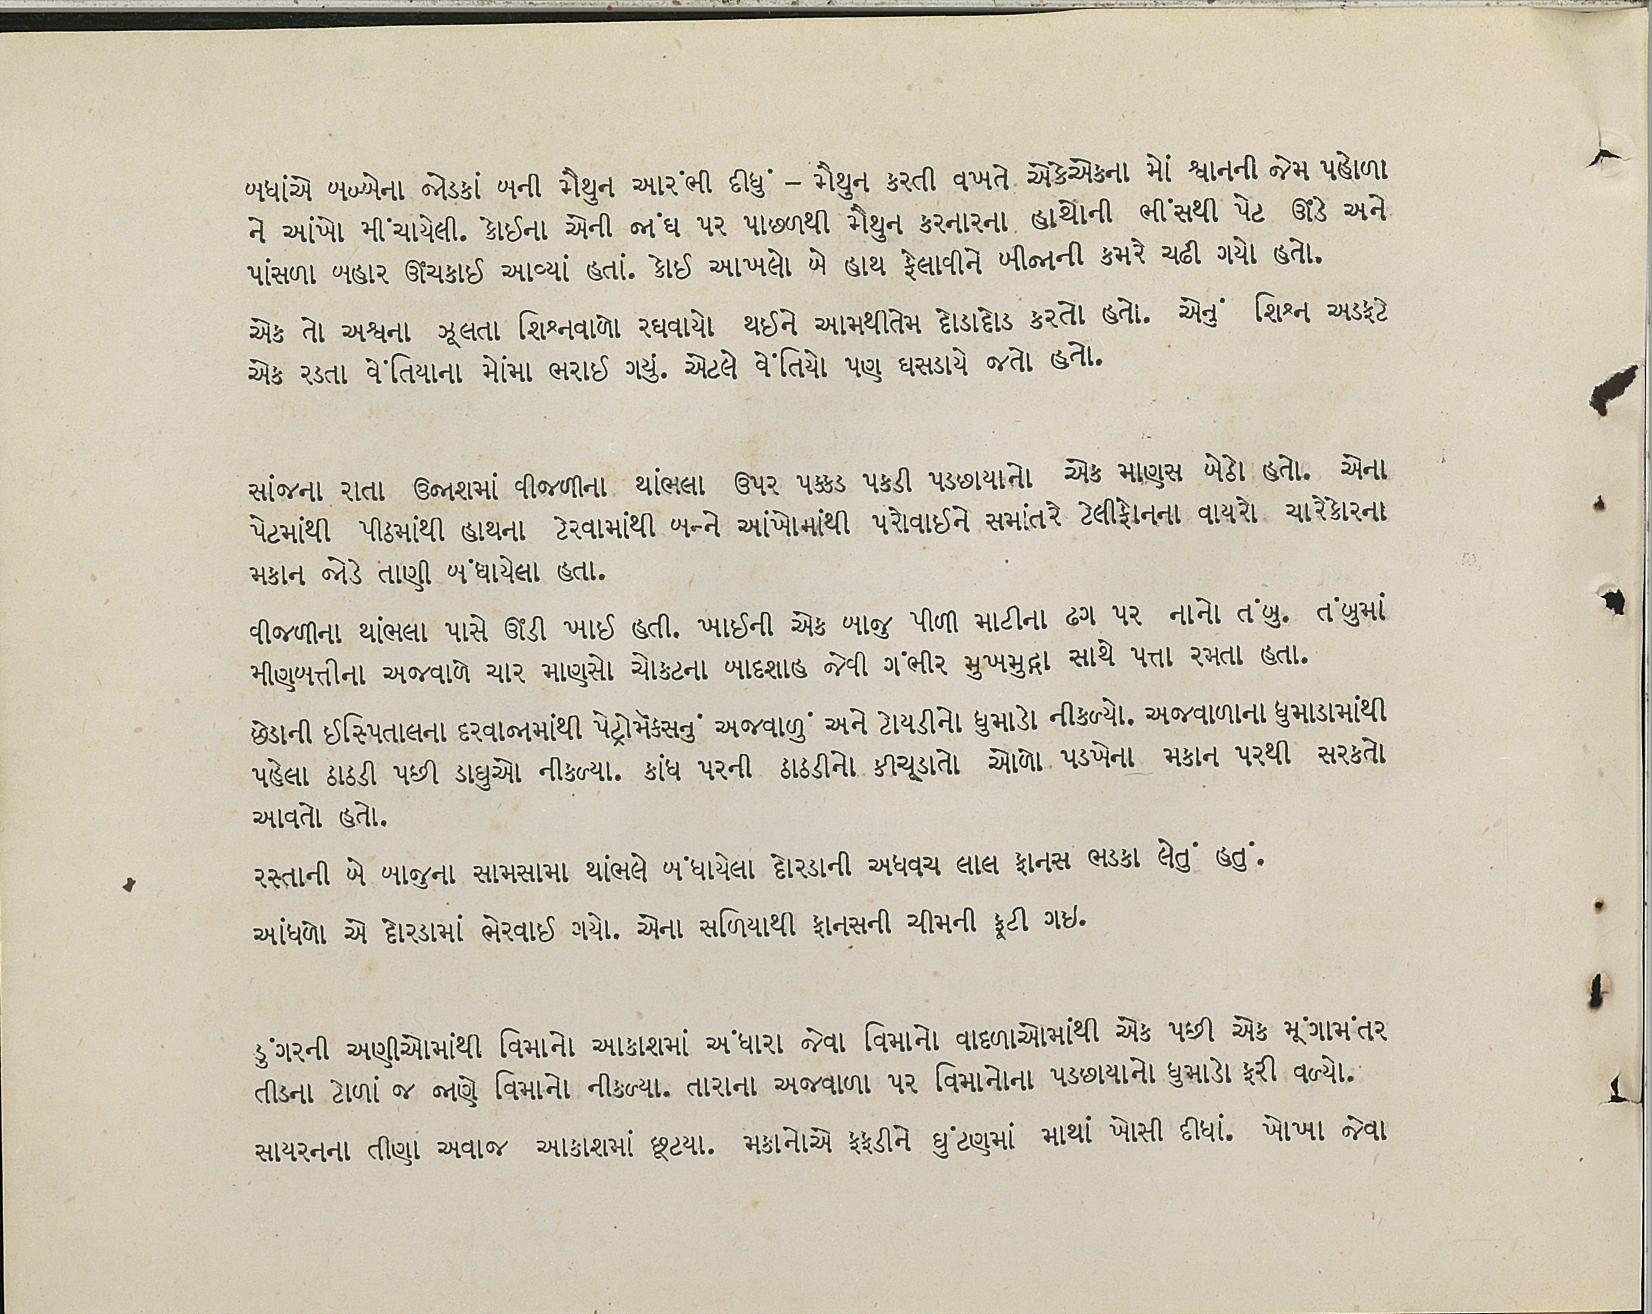 બધાંએ બબ્બેના જોડકાં બની મૈથુન આરંભી દીધું – મૈથુન કરતી વખતે એકેએકના મોં શ્વાનની જેમ પહોળા
ને આંખો મીંચાયેલી. કોઈના એની જાંઘ પર પાછળથી મૈથુન કરનારના હાથોની ભીંસથી પેટ ઊંડે અને
પાંસળા બહાર ઊંચકાઈ આવ્યાં હતાં. કોઈ આખલો બે હાથ ફેલાવીને બીજાની કમરે ચઢી ગયો હતો.
એક તો અશ્વના ઝૂલતા શિશ્નવાળો રઘવાયો થઈને આમથીતેમ દોડાદોડ કરતો હતો. એનું શિશ્ન અડફટે
એક રડતા વેંતિયાના મોંમા ભરાઈ ગયું. એટલે વેંતિયો પણ ઘસડાયે જતો હતો.
સાંજના રાતા ઉજાશમાં વીજળીના થાંભલા ઉપર પક્કડ પકડી પડછાયાનો એક માણસ બેઠો હતો. એના
પેટમાંથી પીઠમાંથી હાથના ટેરવામાંથી બન્ને આંખોમાંથી પરોવાઈને સમાંતરે ટેલીફોનના વાયરો ચારેકોરના
મકાન જોડે તાણી બંધાયેલા હતા.
વીજળીના થાંભલા પાસે ઊંડી ખાઈ હતી. ખાઈની એક બાજુ પીળી માટીના ઢગ પર નાનો તંબુ. તંબુમાં
મીણબત્તીના અજવાળે ચાર માણસો ચોકટના બાદશાહ જેવી ગંભીર મુખમુદ્રા સાથે પત્તા રમતા હતા.
છેડાની ઈસ્પિતાલના દરવાજામાંથી પેટ્રોમૅક્સનું અજવાળું અને ટોયડીનો ધુમાડો નીકળ્યો. અજવાળાના ધુમાડામાંથી
પહેલા ઠાઠડી પછી ડાઘુઓ નીકળ્યા. કાંધ પરની ઠાઠડીનો કીચૂડાતો ઓળો પડખેના મકાન પરથી સરકતો
આવતો હતો.
રસ્તાની બે બાજુના સામસામા થાંભલે બંધાયેલા દોરડાની અધવચ લાલ ફાનસ ભડકા લેતું હતું.
આંધળો એ દોરડામાં ભેરવાઈ ગયો. એના સળિયાથી ફાનસની ચીમની ફૂટી ગઇ.
ડુંગરની અણીઓમાંથી વિમાનો આકાશમાં અંધારા જેવા વિમાનો વાદળાઓમાંથી એક પછી એક મૂંગામંતર
તીડના ટોળાં જ જાણે વિમાનો નીકળ્યા. તારાના અજવાળા પર વિમાનોના પડછાયાનો ધુમાડો ફરી વળ્યો.
સાયરનના તીણા અવાજ આકાશમાં છૂટયા. મકાનોએ ફફડીને ઘુંટણમાં માથાં ખોસી દીધાં. ખોખા જેવા